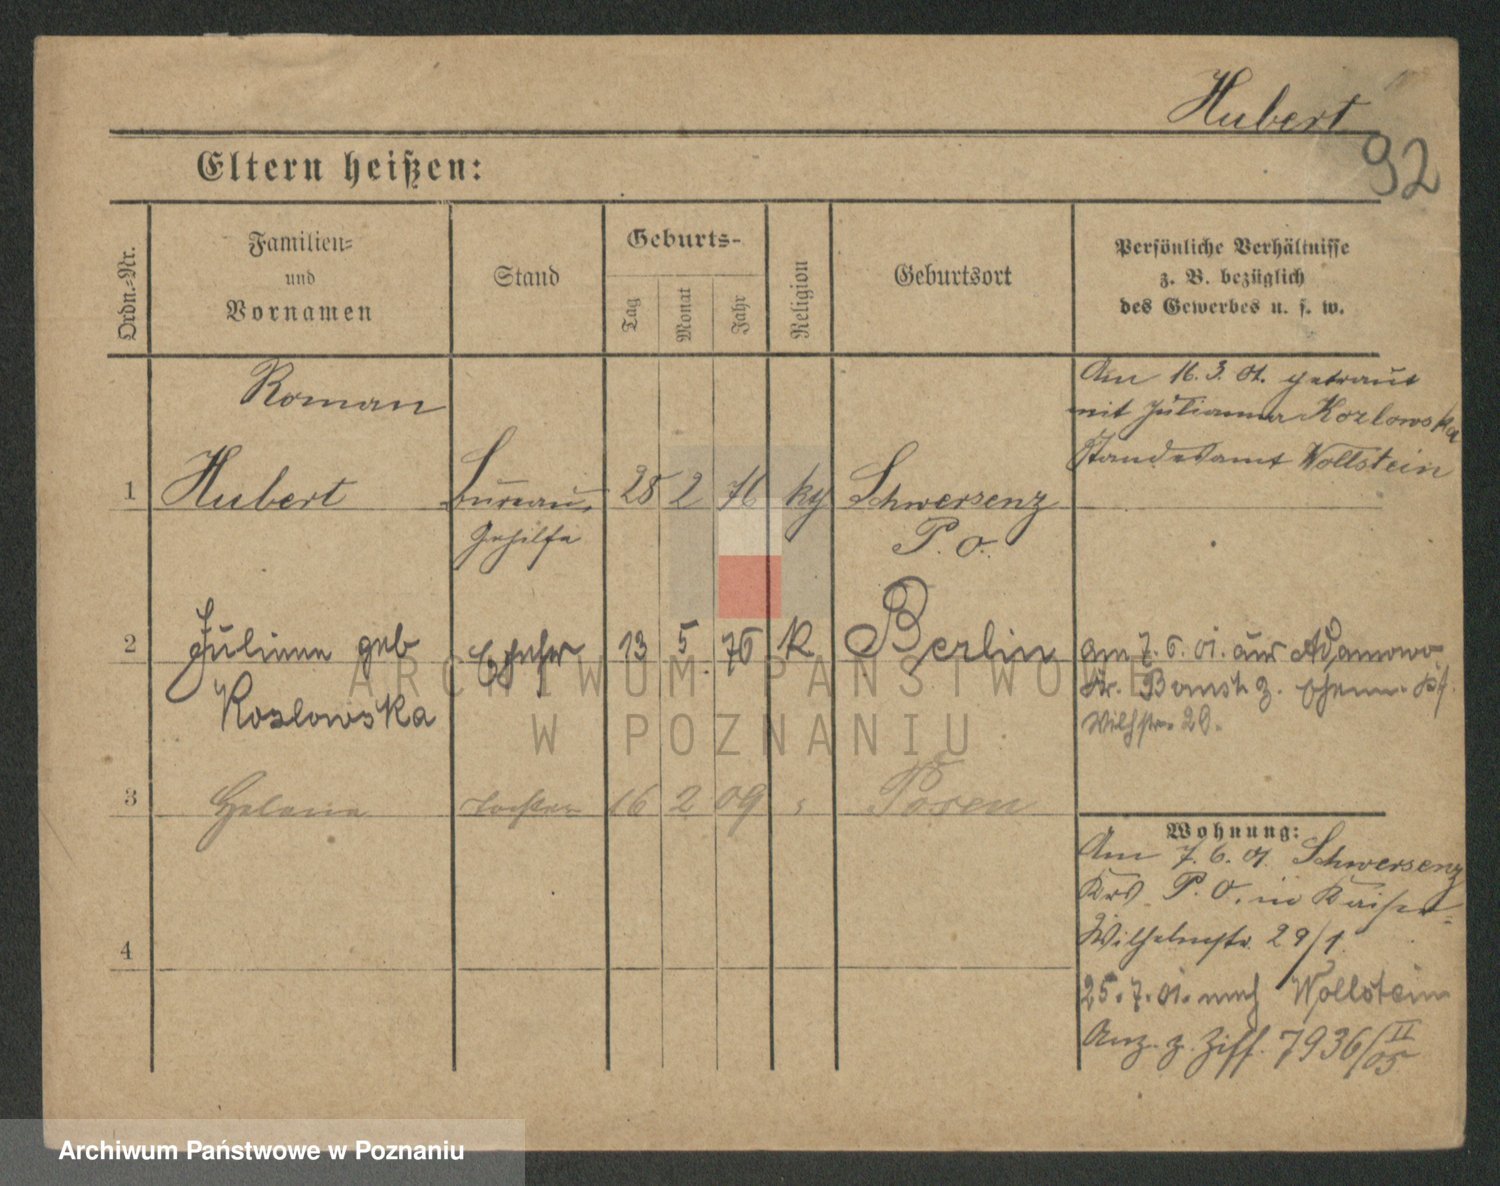 Hubert
92
Eltern heißen:
Ordn.-Nr.
Familien-
und
Vornamen
Stand
Geburts-
Tag
Monat
Jahr
Religion
Geburtsort
Persönliche Verhältnisse
z. B. bezüglich
des Gewerbes u. s. w.
Roman
1 Hubert Bureau- 28 2 76 Schwersenz
Gehilfe P. O.
Am 16. 3. 01. getraut
mit Julianna Kozlowska
Standesamt Wollstein
2 Juliane geb Ehefr 13 5 76 k Berlin
Kozlowska
am 7. 6. 01. aus Adamowo
Kr. Bomst z. Ehem.
Wilhstr. 29.
3 Helena Tochter 16 2 09 Posen
4
Wohnung:
Am 7. 6. 01. Schwersenz
Krs P. O. in Kaiser-
Wilhelmstr. 29/1.
25. 7. 01. nach Wollstein
Anz. z. Ziff. 7936/II 05
ARCHIWUM PAŃSTWOWE
W POZNANIU
Archiwum Państwowe w Poznaniu